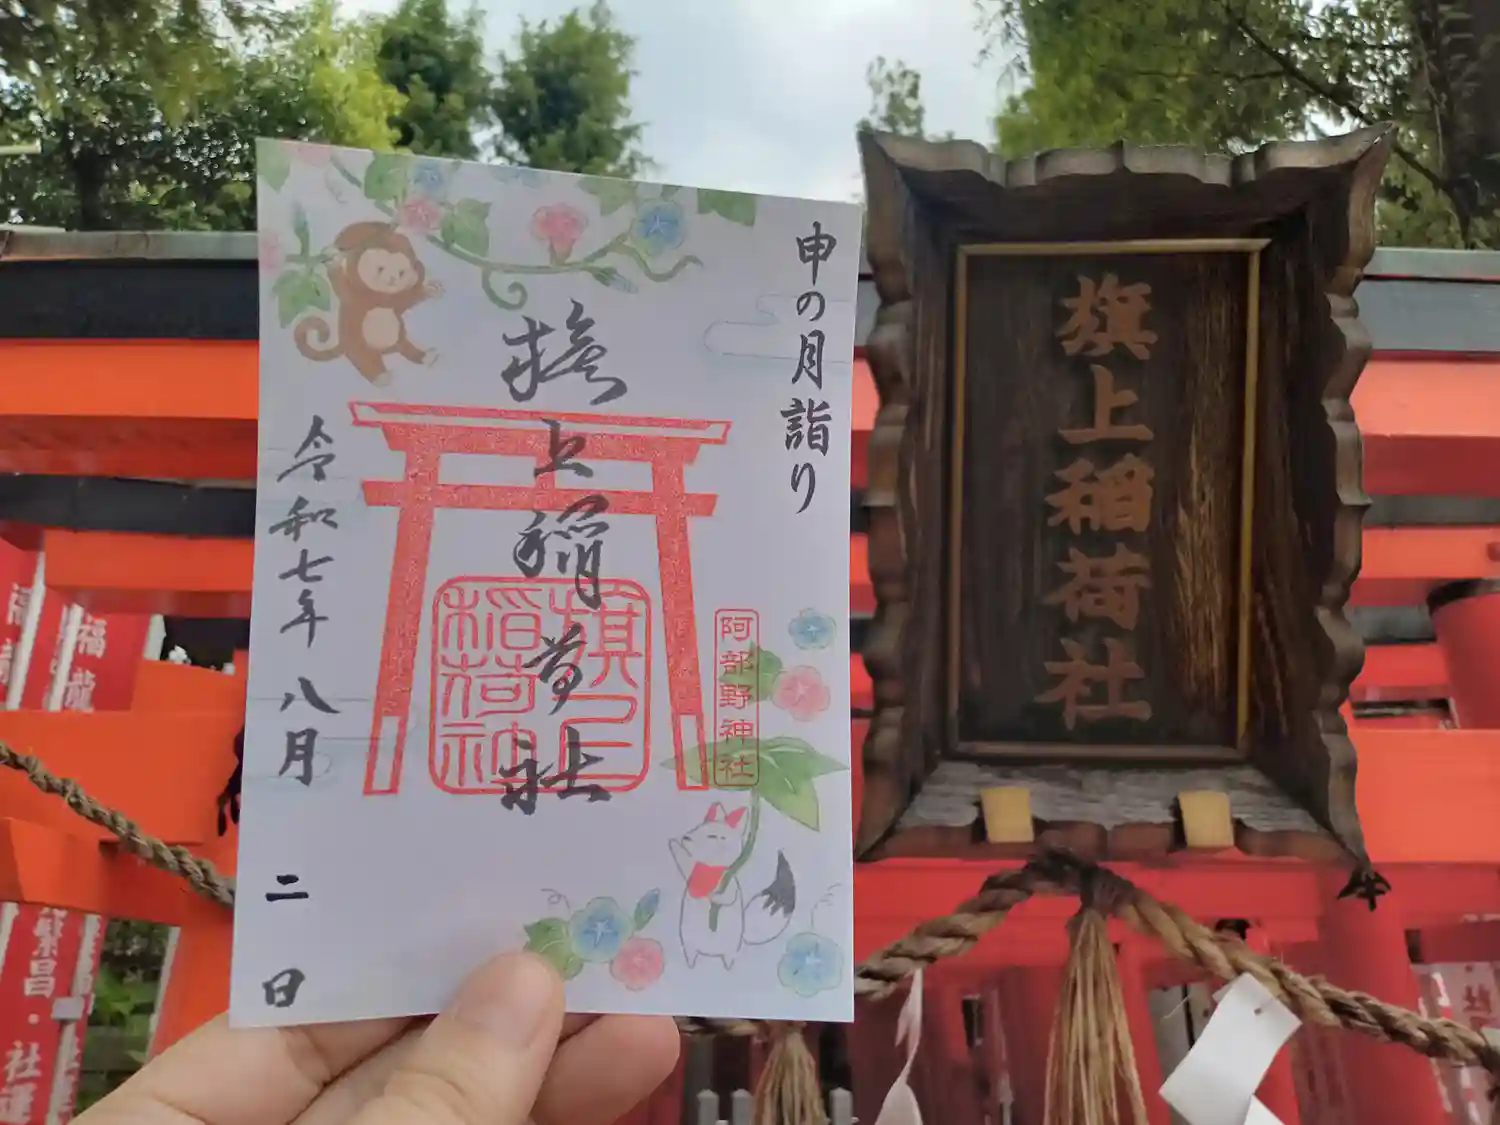 申の月詣り
旗上稲荷社
旗上
稲荷社
阿部野神社
令和七年八月二日
旗上稲荷社
福
福龍
繁昌・社運